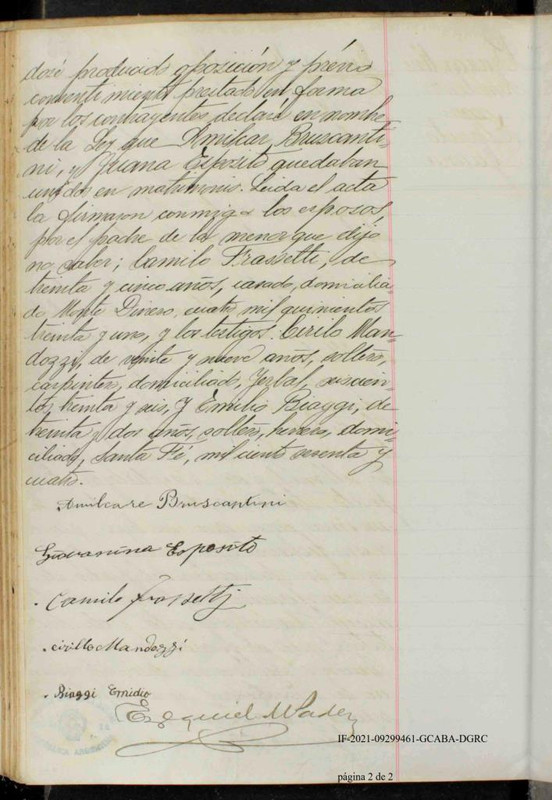 dose producido oposición y prévio
consentimiento prestado en forma
por los contrayentes declaré en nombre
de la Ley que Amilcar Bruscanti-
ni, y Juana Esposito quedaban
unidos en matrimonio. Leida el acta
la firmaron conmigo los esposos,
por el padre de la menor que dijo
no saber; Camilo Frassetti, de
treinta y cinco años, casado, domicilia-
do Monte Dinero, cuatro mil quinientos
treinta y uno, y los testigos. Cirilo Man-
dozzi, de veinte y nueve años, soltero,
carpintero, domiciliado, Yerbal, seiscien-
tos, treinta y seis, y Emilio Biaggi, de
treinta y dos años, soltero, herrero, domi-
ciliado, Santa Fé, mil ciento setenta y
cuatro.
Amilcare Bruscantini
Giovannina Esposito
Camilo Frossetti
Cirillo Mandozzi
Biaggi Emidio
Ezequiel
IF-2021-09299461-GCABA-DGRC
página 2 de 2